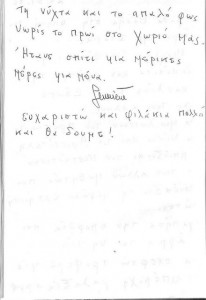 Τη νύχτα και το απαλό φως
νωρίς το πρωί στο χωριό μας.
Ήτανε σπίτι για μερικες
μέρες για μένα.
ευχαριστώ και φιλάκια πολλά
και θα δουμε!